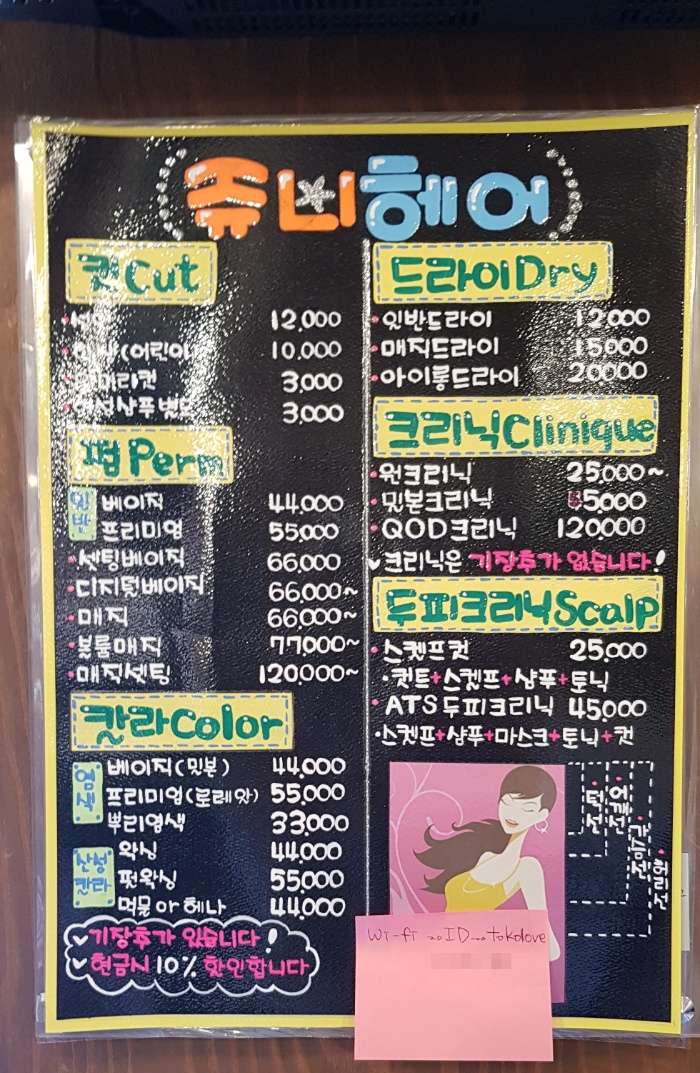 쥬니헤어
컷Cut
12,000
(어린이) 10,000
앞머리컷 3,000
3,000
펌Perm
일반
베이직 44,000
프리미엄 55,000
·셋팅베이직 66,000
·디지털베이직 66,000~
·매직 66,000~
·볼륨매직 77,000~
·매직셋팅 120,000~
칼라Color
염색
베이직(밋본) 44,000
프리미엄(로레알) 55,000
뿌리염색 33,000
산성칼라
왁싱 44,000
펏왁싱 55,000
먹물 or 헤나 44,000
기장추가 있습니다!
현금시 10% 할인합니다
드라이Dry
·일반드라이 12,000
·매직드라이 15,000
·아이롱드라이 20,000
크리닉Clinique
·원크리닉 25,000~
·밋본크리닉 5,000
·QOD크리닉 120,000
크리닉은 기장추가 없습니다!
두피크리닉Scalp
·스켈프컷 25,000
·컷트+스켈프+샴푸+토닉
·ATS두피크리닉 45,000
·스켈프+샴푸+마스크+토닉+컷
Wi-fi → ID → tokolove